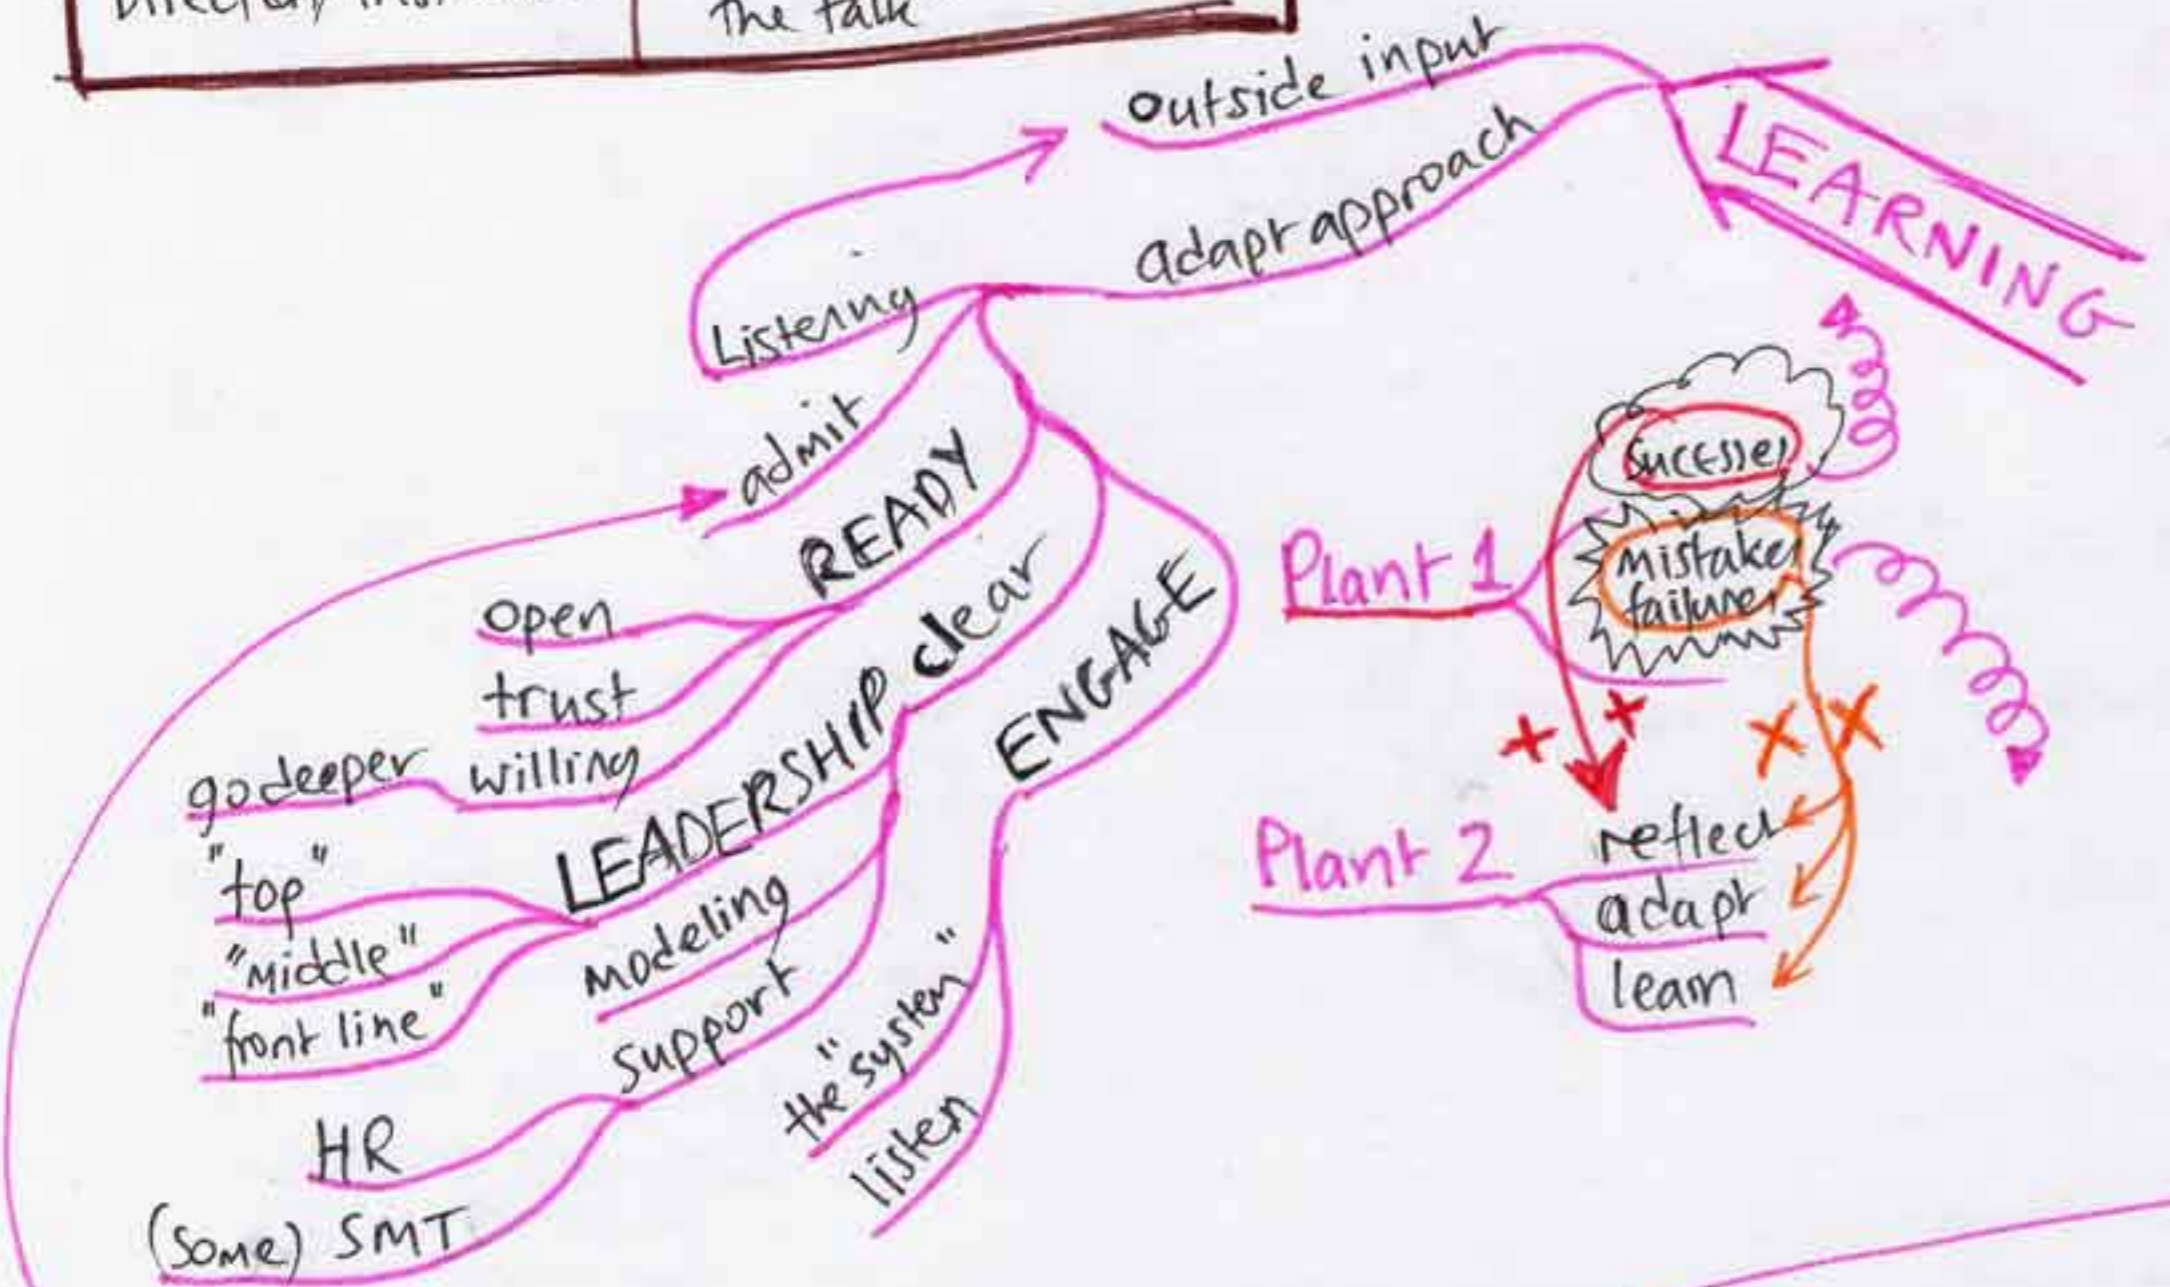 the talk
outside input
LEARNING
adapt approach
Listening
admit
READY
open
trust
willing
go deeper
clear
LEADERSHIP
"top"
"middle"
"front line"
modeling
support
HR
(some) SMT
ENGAGE
the "system"
listen
Plant 1
sucesses
mistakes
failures
Plant 2
reflect
adapt
learn